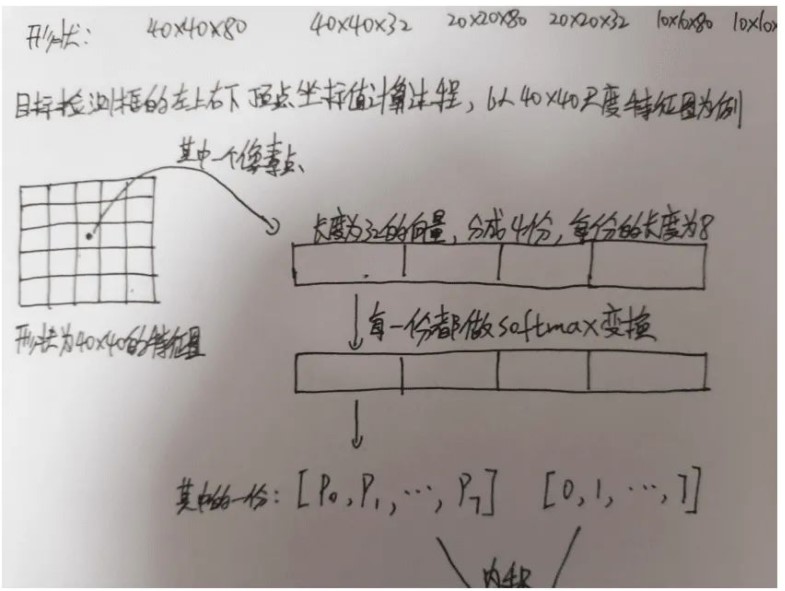 形状: 40×40×80 40×40×32 20×20×80 20×20×32 10×10×80 10×10×
目标检测框的左上右下顶点坐标值计算过程,以40×40尺度特征图为例
其中一个像素点
长度为32的向量,分成4份,每份的长度为8
每一份都做softmax变换
形状为40×40的特征图
其中的一份: [P₀,P₁,…,P₇] [0,1,…,7]
内积